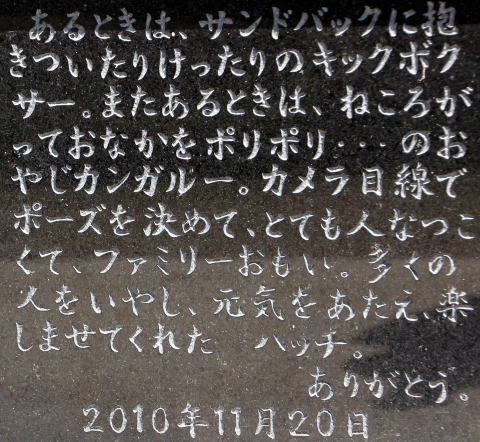 あるときは、サンドバックに抱
きついたりけったりのキックボク
サー。またあるときは、ねころが
っておなかをポリポリ・・・のお
やじカンガルー。カメラ目線で
ポーズを決めて、とても人なつこ
くて、ファミリーおもい。多くの
人をいやし、元気をあたえ、楽
しませてくれた　ハッチ。
ありがとう。
2010年11月20日